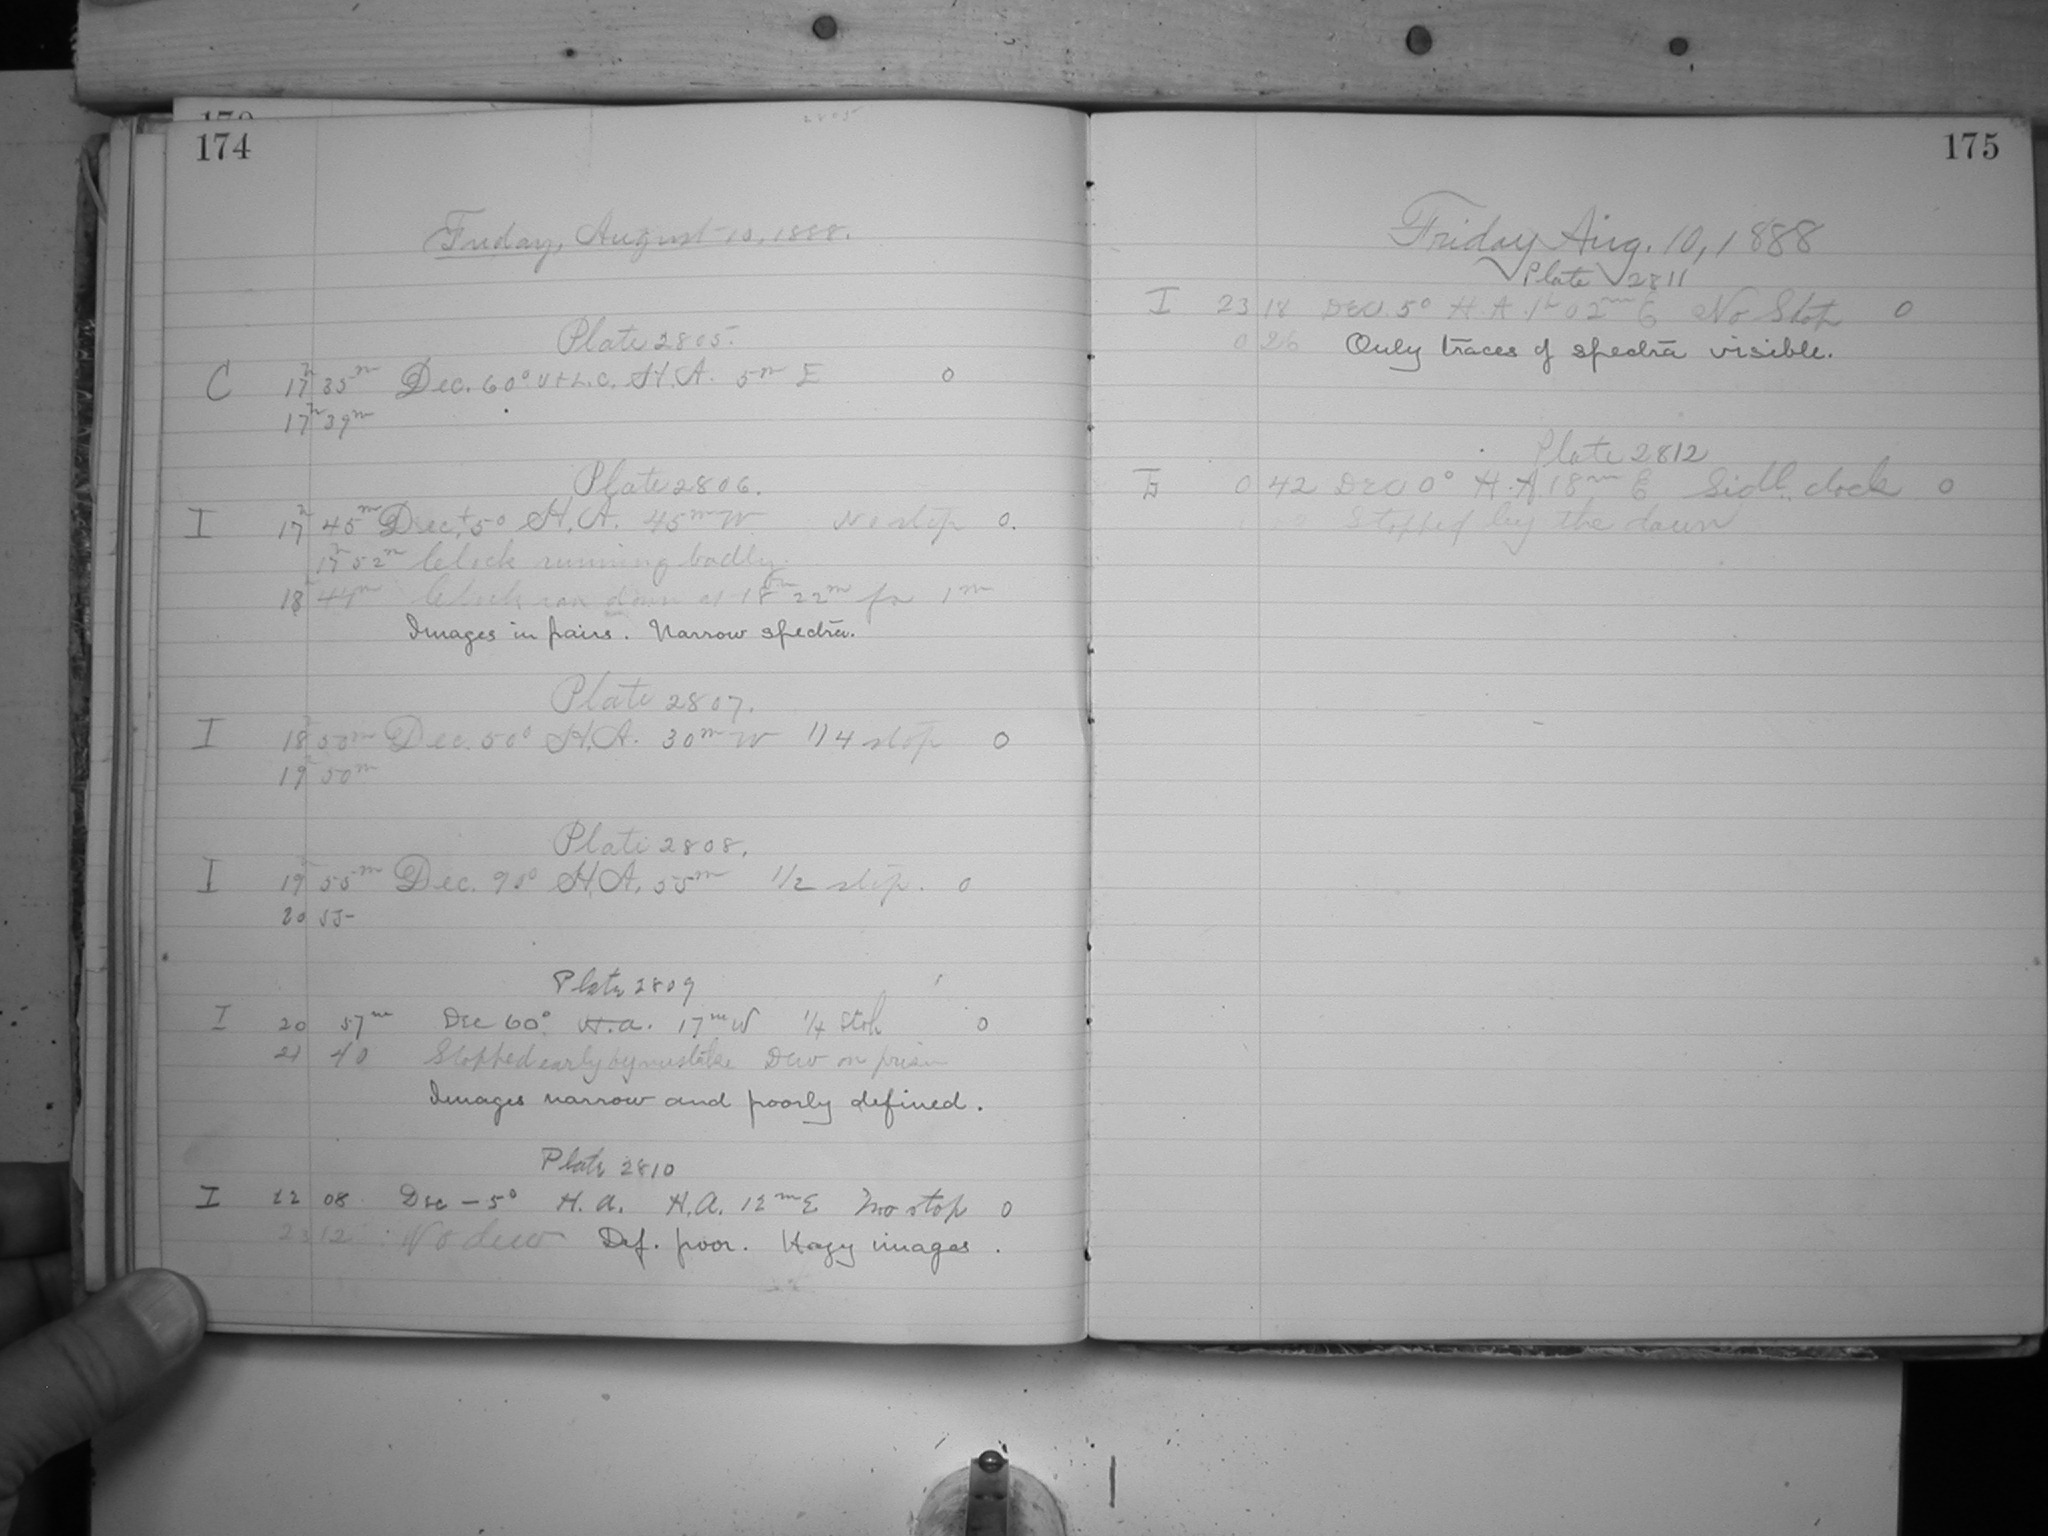 173
174
2805
Friday, August 10, 1888.
Plate 2805.
C 17h 35m Dec. 60° U+L.C. H.A. 5m E 0
17h 39m
Plate 2806.
I 17h 45m Dec. +50 H.A. 45m W No stop 0.
17h 52m Clock running badly.
18 44m Clock ran down at 18h 22m for 1m
Images in pairs. Narrow spectra.
Plate 2807.
I 18h 50m Dec. 50° H.A. 30m W 1/4 stop 0
19 50m
Plate 2808.
I 19h 55m Dec. 90° H.A. 55m 1/2 stop. 0
20 55
Plate 2809
I 20 57m Dec 60° H.a. 17m W 1/4 Stop 0
21 40 Stopped early by mistake Dew on prism
Images narrow and poorly defined.
Plate 2810
I 22 08 Dec -5° H.a. H.a. 12m E No stop 0
23 12 No dew Def. poor. Hazy images.
175
Friday Aug. 10, 1888
Plate 2811
I 23 18 Dec. 5° H.A. 1h 02m E No Stop 0
0 26 Only traces of spectra visible.
Plate 2812
0 42 Dec 0° H.A 18m E Sidl. clock 0
Stopped by the dawn